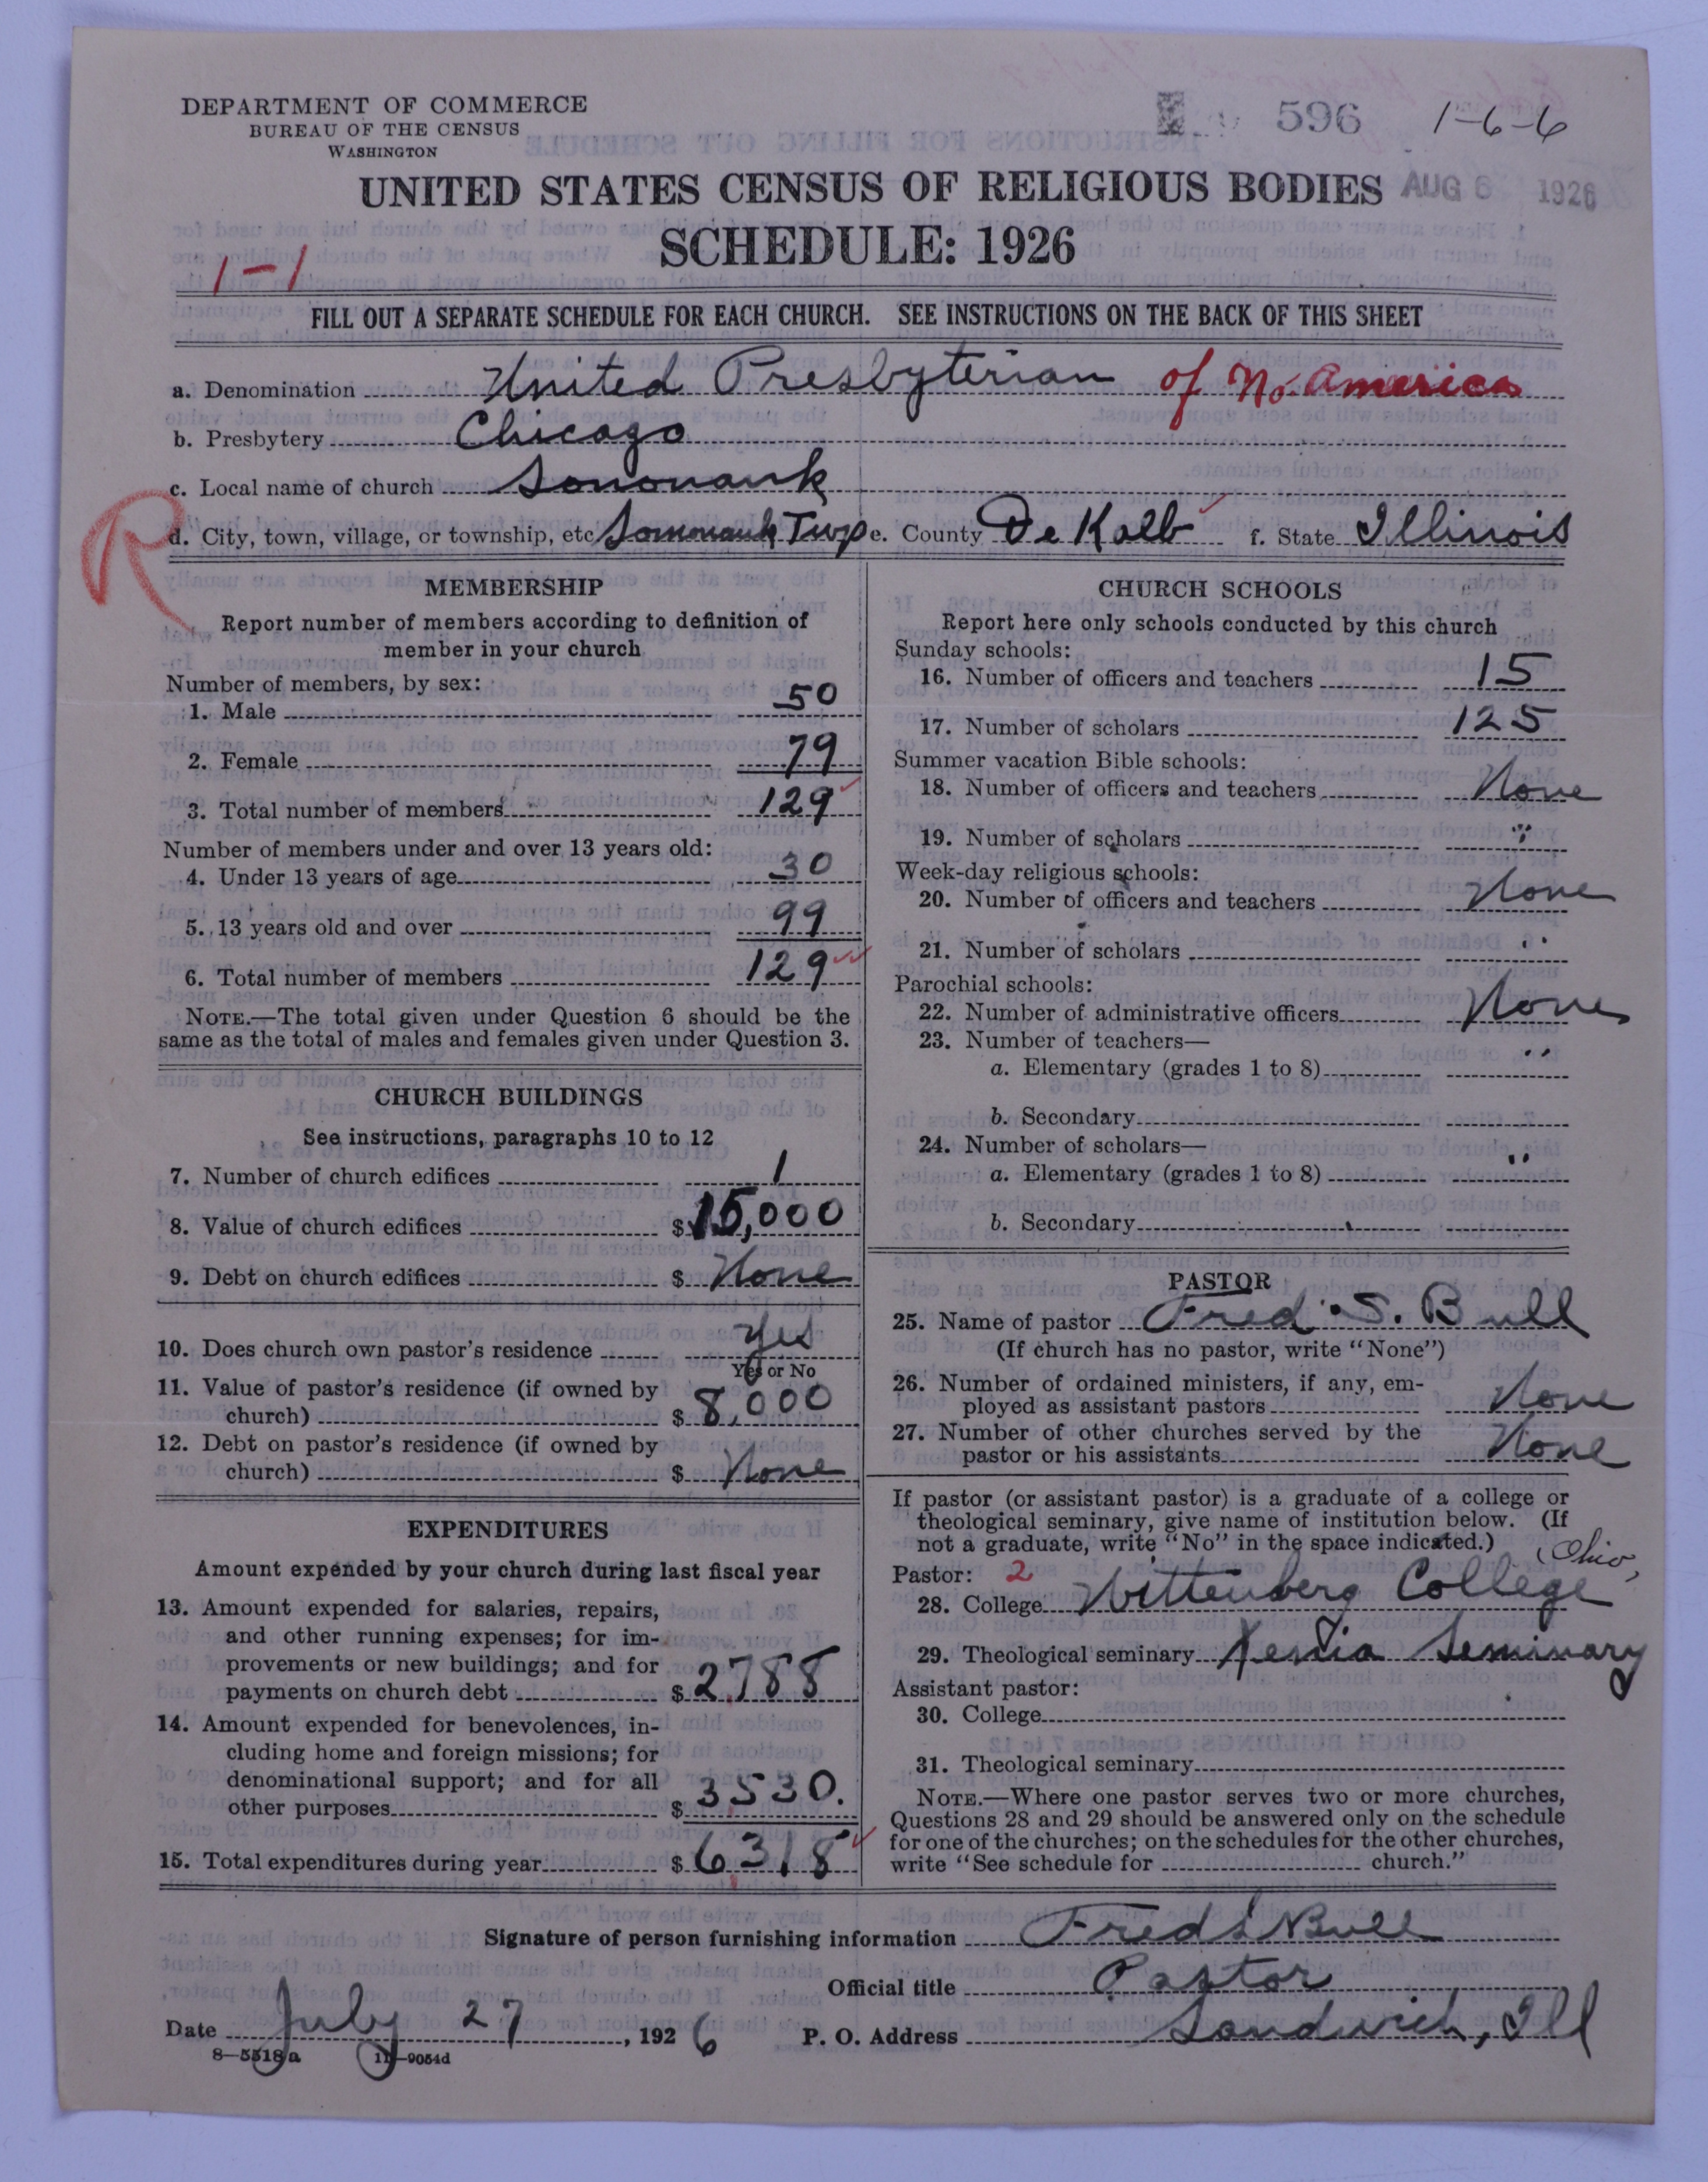 DEPARTMENT OF COMMERCE
BUREAU OF THE CENSUS
WASHINGTON
596 1-6-6
UNITED STATES CENSUS OF RELIGIOUS BODIES
AUG 6 1926
SCHEDULE: 1926
1-1
FILL OUT A SEPARATE SCHEDULE FOR EACH CHURCH. SEE INSTRUCTIONS ON THE BACK OF THIS SHEET
a. Denomination United Presbyterian of No. America
b. Presbytery Chicago
c. Local name of church Somonauk
R
d. City, town, village, or township, etc Somonauk Twp e. County De Kalb f. State Illinois
MEMBERSHIP
Report number of members according to definition of
member in your church
Number of members, by sex:
1. Male 50
2. Female 79
3. Total number of members 129
Number of members under and over 13 years old:
4. Under 13 years of age 30
5. 13 years old and over 99
6. Total number of members 129
NOTE.—The total given under Question 6 should be the
same as the total of males and females given under Question 3.
CHURCH BUILDINGS
See instructions, paragraphs 10 to 12
7. Number of church edifices 1
8. Value of church edifices $15,000
9. Debt on church edifices $ None
10. Does church own pastor's residence Yes
Yes or No
11. Value of pastor's residence (if owned by
church) $ 8,000
12. Debt on pastor's residence (if owned by
church) $ None
EXPENDITURES
Amount expended by your church during last fiscal year
13. Amount expended for salaries, repairs,
and other running expenses; for im-
provements or new buildings; and for
payments on church debt $ 2788
14. Amount expended for benevolences, in-
cluding home and foreign missions; for
denominational support; and for all
other purposes $ 3530.
15. Total expenditures during year $ 6318
CHURCH SCHOOLS
Report here only schools conducted by this church
Sunday schools:
16. Number of officers and teachers 15
17. Number of scholars 125
Summer vacation Bible schools:
18. Number of officers and teachers None
19. Number of scholars "
Week-day religious schools:
20. Number of officers and teachers None
21. Number of scholars "
Parochial schools:
22. Number of administrative officers None
23. Number of teachers—
a. Elementary (grades 1 to 8) "
b. Secondary
24. Number of scholars—
a. Elementary (grades 1 to 8) "
b. Secondary
PASTOR
25. Name of pastor Fred S. Bull
(If church has no pastor, write "None")
26. Number of ordained ministers, if any, em-
ployed as assistant pastors None
27. Number of other churches served by the
pastor or his assistants None
If pastor (or assistant pastor) is a graduate of a college or
theological seminary, give name of institution below. (If
not a graduate, write "No" in the space indicated.)
(Ohio)
Pastor: 2
28. College Wittenberg College
29. Theological seminary Xenia Seminary
Assistant pastor:
30. College
31. Theological seminary
NOTE.—Where one pastor serves two or more churches,
Questions 28 and 29 should be answered only on the schedule
for one of the churches; on the schedules for the other churches,
write "See schedule for church."
Signature of person furnishing information Fred S Bull
Official title Pastor
Date July 27, 1926 P. O. Address Sandwich, Ill
8—5518a 11—9054d